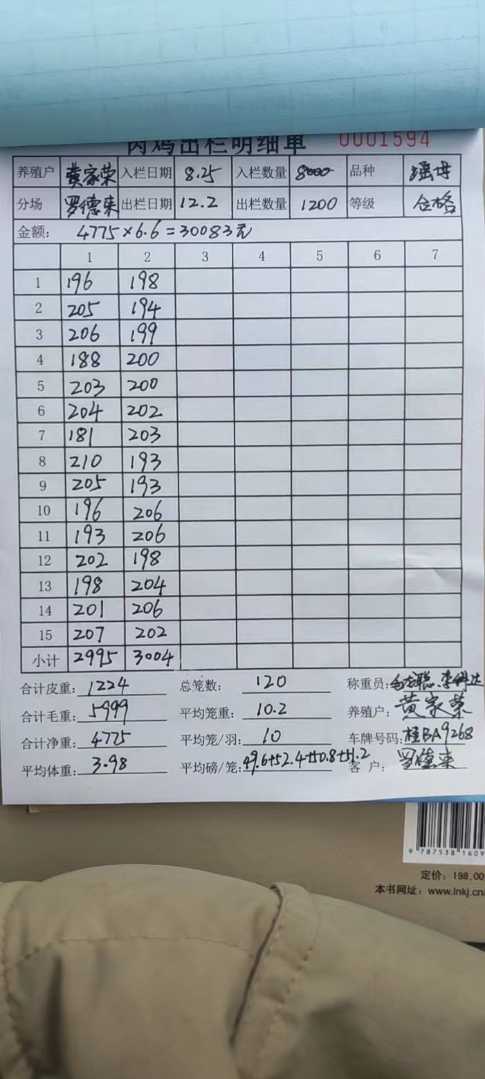 肉鸡出栏明细单 0001594
养殖户 黄家荣 入栏日期 8.25 入栏数量 8000 品种 瑶母
分场 罗德来 出栏日期 12.2 出栏数量 1200 等级 合格
金额： 4775×6.6=30083元
1 2 3 4 5 6 7
1 196 198
2 205 194
3 206 199
4 188 200
5 203 200
6 204 202
7 181 203
8 210 193
9 205 193
10 196 206
11 193 206
12 202 198
13 198 204
14 201 206
15 207 202
小计 2995 3004
合计皮重： 1224 总笼数： 120 称重员：
合计毛重： 5999 平均笼重： 10.2 养殖户： 黄家荣
合计净重： 4775 平均笼/羽： 10 车牌号码： 桂BA9268
平均体重： 3.98 平均磅/笼： 49.6+52.4+50.8+51.2 客 户： 罗德来
9 787538 1609
定价：198.00
本书网址：www.lnkj.cn